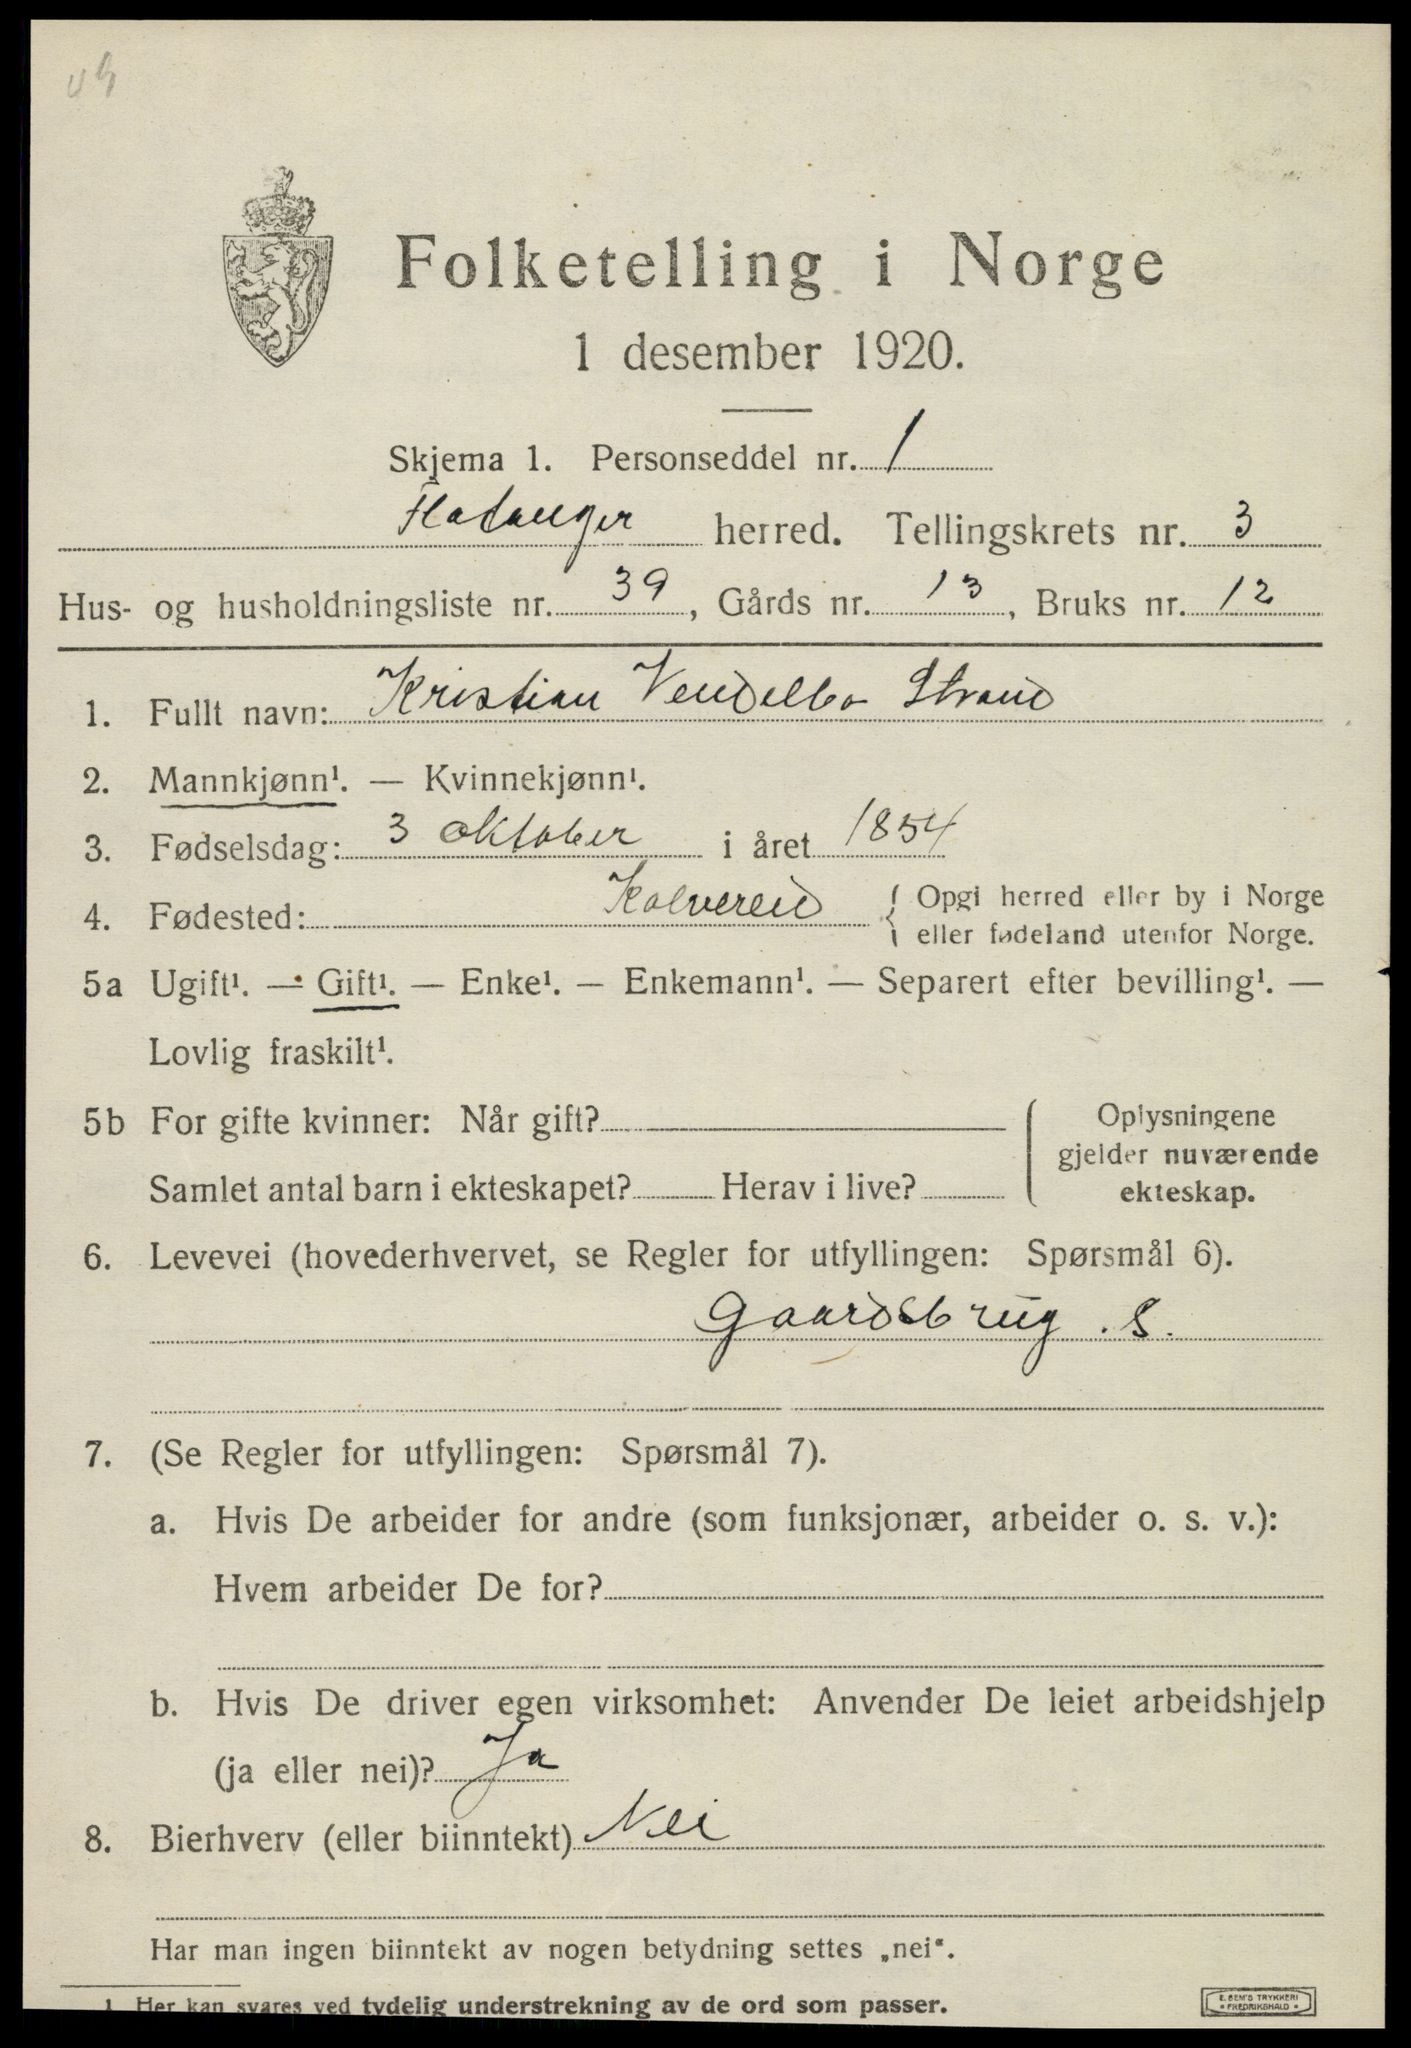 Folketelling i Norge
1 desember 1920.
Skjema 1. Personseddel nr. 1
Flatanger herred. Tellingskrets nr. 3
Hus- og husholdningsliste nr. 39, Gårds nr. 13, Bruks nr. 12
1. Fullt navn: Kristian Vendelbo Strand
2. Mannkjønn¹. — Kvinnekjønn¹.
3. Fødselsdag: 3 oktober i året 1854
4. Fødested: Kolvereid { Opgi herred eller by i Norge
eller fødeland utenfor Norge.
5a Ugift¹. — Gift¹. — Enke¹. — Enkemann¹. — Separert efter bevilling¹. —
Lovlig fraskilt¹.
5b For gifte kvinner: Når gift?
Samlet antal barn i ekteskapet? Herav i live?
Oplysningene
gjelder nuværende
ekteskap.
6. Levevei (hovederhvervet, se Regler for utfyllingen: Spørsmål 6).
Gaardsbrug. S.
7. (Se Regler for utfyllingen: Spørsmål 7).
a. Hvis De arbeider for andre (som funksjonær, arbeider o. s. v.):
Hvem arbeider De for?
b. Hvis De driver egen virksomhet: Anvender De leiet arbeidshjelp
(ja eller nei)? Ja
8. Bierhverv (eller biinntekt) Nei
Har man ingen biinntekt av nogen betydning settes „nei“.
1 Her kan svares ved tydelig understrekning av de ord som passer.
E. SEM'S TRYKKERI
• FREDRIKSHALD •